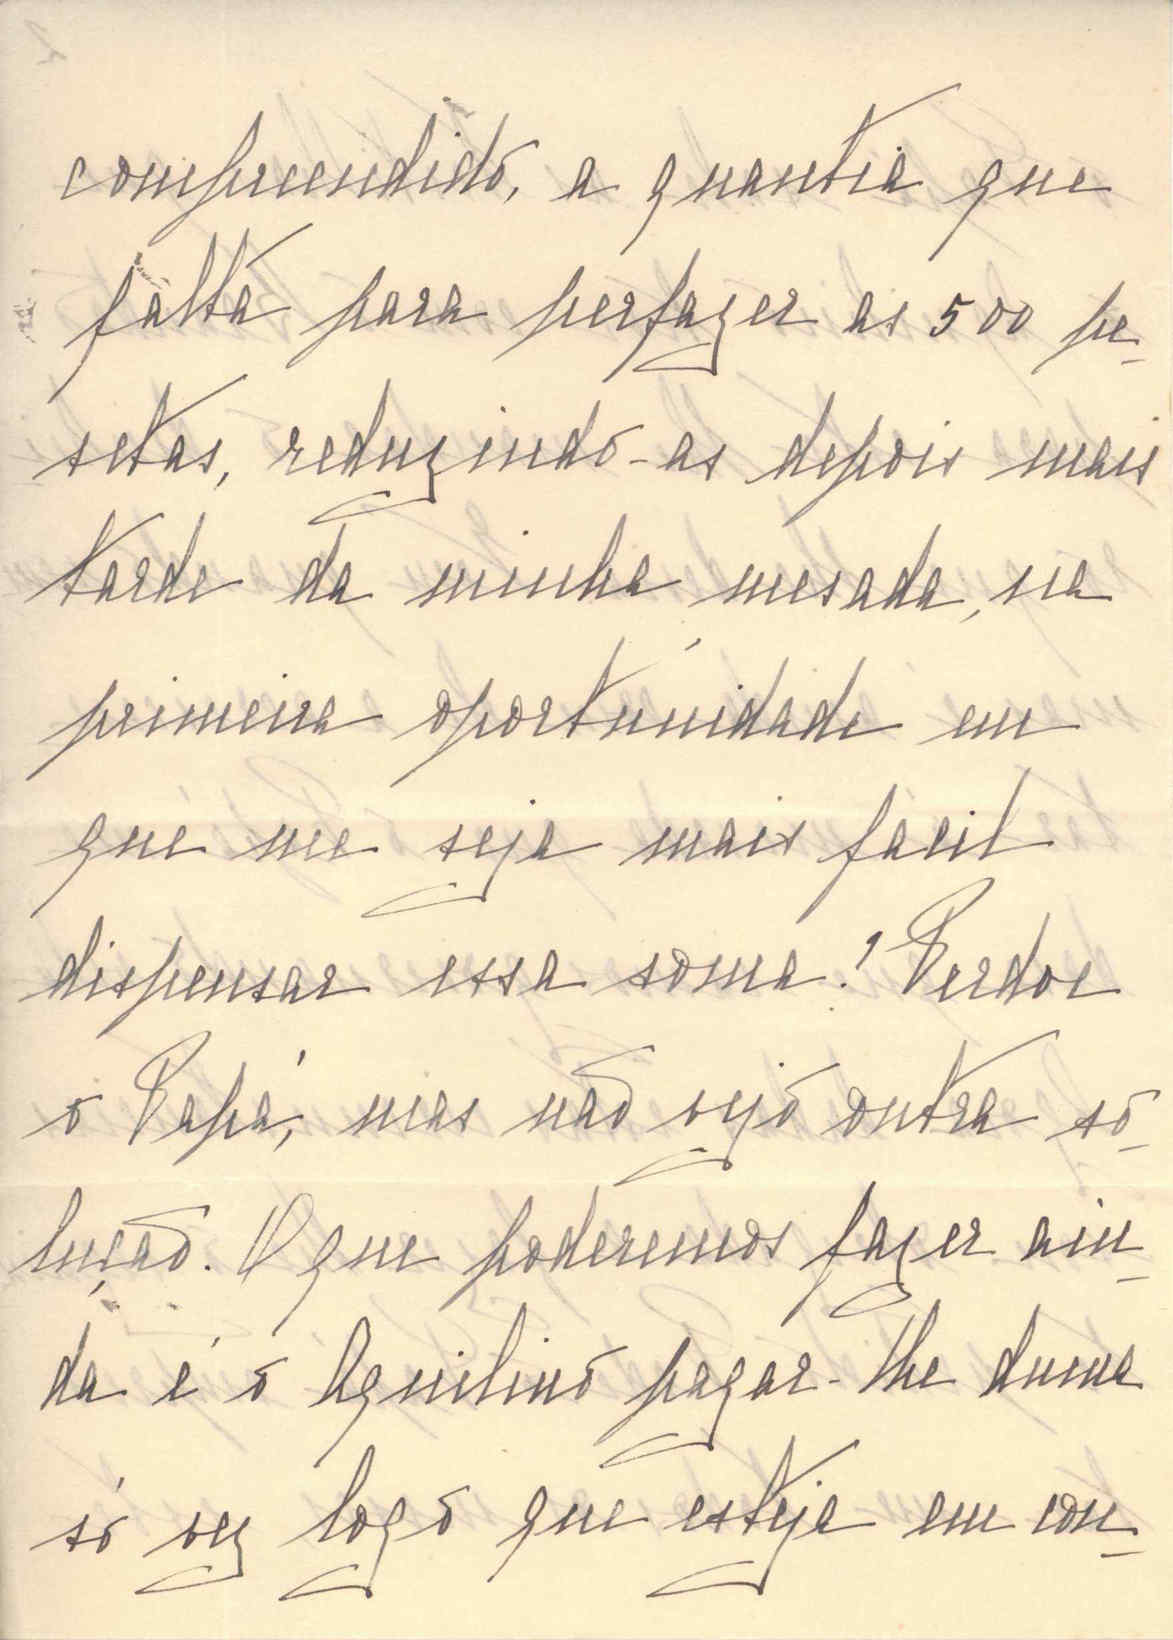 comprendido, a quantia que
falta para perfazer as 500 pe-
setas, reduzindo-as depois mais
tarde da minha mesada, na
primeira oportunidade em
que me seja mais facil
dispensar essa soma! Perdoe
o Papá, mas não vejo outra so-
lução. O que poderemos fazer ain-
da é o Aquilino pagar-lhe duma
só vez logo que esteja em con-